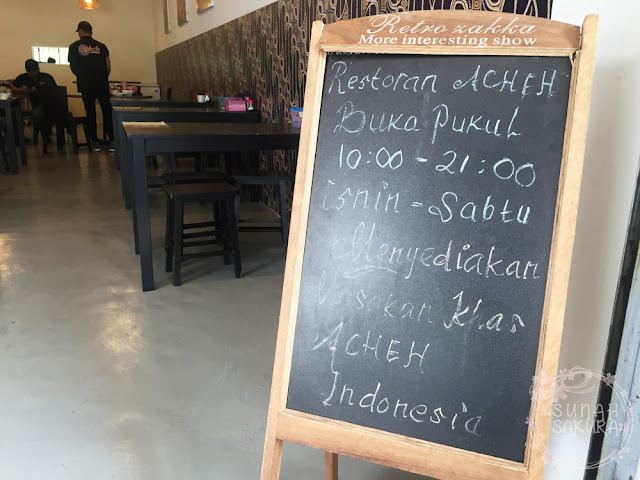 Retro zakka
More interesting show
Restoran ACHEH
Buka Pukul
10:00 - 21:00
isnin - Sabtu
Menyediakan
Masakan Khas
ACHEH
Indonesia
SUNAH
SAKURA